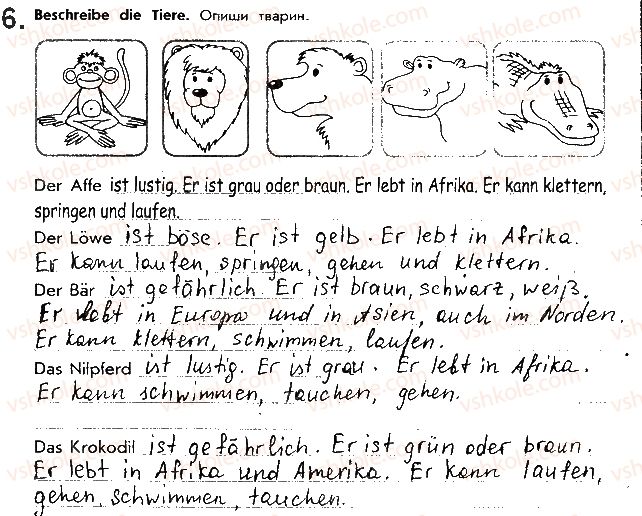 6. Beschreibe die Tiere. Опиши тварин.
Der Affe ist lustig. Er ist grau oder braun. Er lebt in Afrika. Er kann klettern,
springen und laufen.
Der Löwe ist böse. Er ist gelb. Er lebt in Afrika.
Er kann laufen, springen, gehen und klettern.
Der Bär ist gefährlich. Er ist braun, schwarz, weiß.
Er lebt in Europa und in Asien, auch im Norden.
Er kann klettern, schwimmen, laufen.
Das Nilpferd ist lustig. Er ist grau. Er lebt in Afrika.
Er kann schwimmen, tauchen, gehen.
Das Krokodil ist gefährlich. Er ist grün oder braun.
Er lebt in Afrika und Amerika. Er kann laufen,
gehen, schwimmen, tauchen.